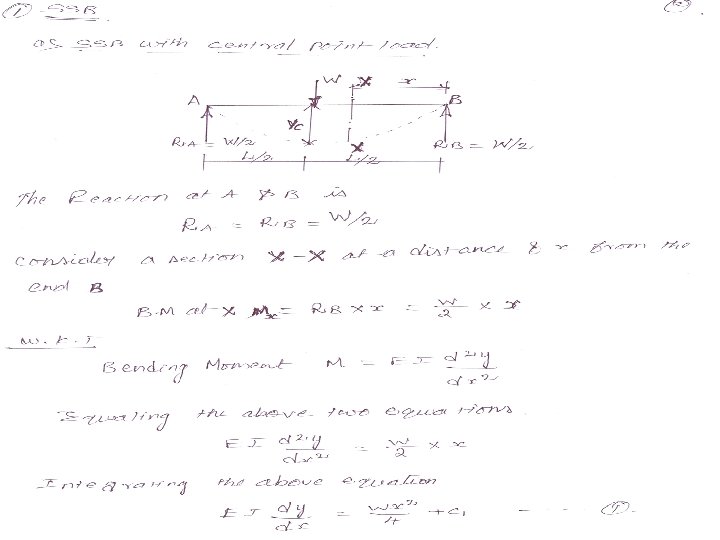 ① SSB.
a) SSB with central point load.
W X x
A B
yc
RA = W/2 X RB = W/2
L/2 L/2
The Reaction at A & B is
RA = RB = W/2
consider a section X-X at a distance x from the
end B
B.M at X Mx = RB × x = W/2 × x
W.K.T
Bending Moment M = EI d²y/dx²
Equating the above two equations.
EI d²y/dx² = W/2 × x
Integrating the above equation
EI dy/dx = Wx²/4 + C₁ - - - - ①.